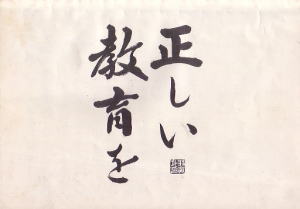 正しい
教育を